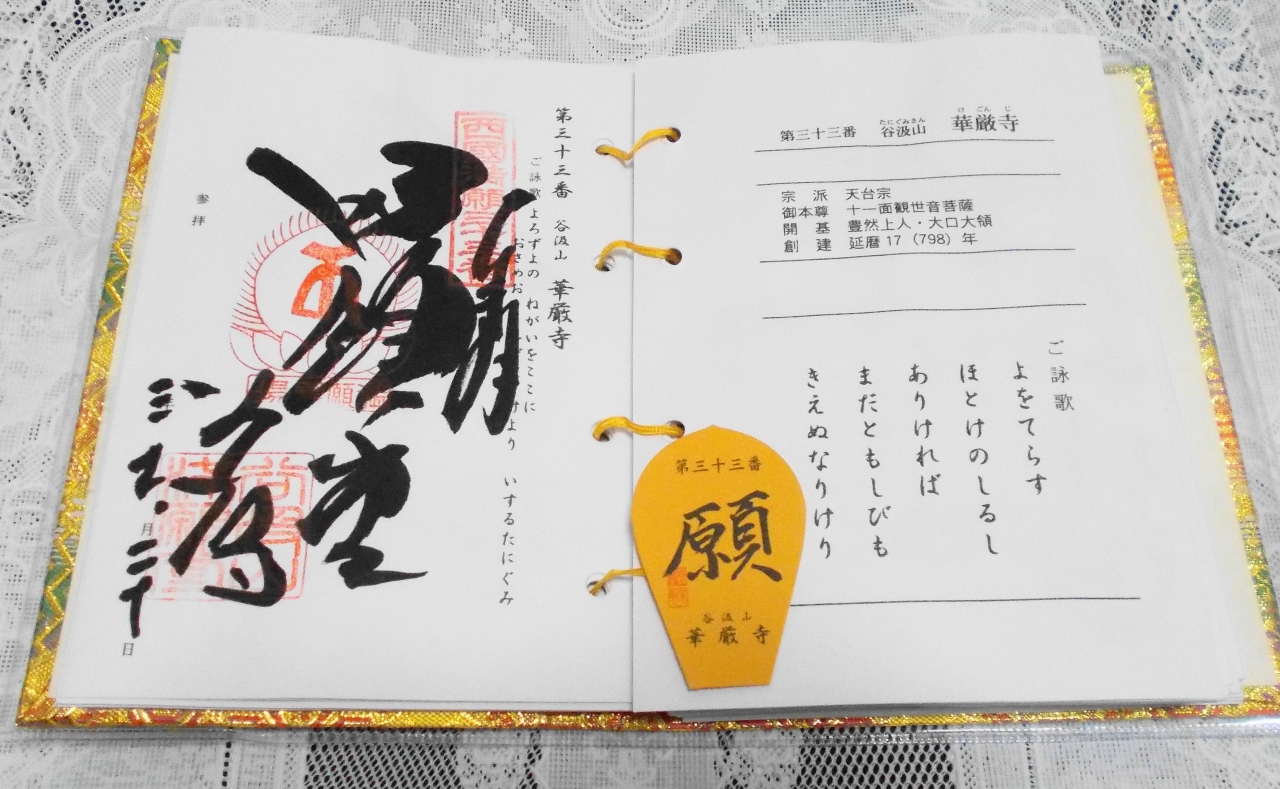 第三十三番 谷汲山 華厳寺
たにぐみさん
けごんじ
宗派 天台宗
御本尊 十一面観世音菩薩
開基 豊然上人・大口大領
創建 延暦17（798）年
ご詠歌
よをてらす
ほとけのしるし
ありければ
まだともしびも
きえぬなりけり
第三十三番
願
谷汲山
華厳寺
第三十三番 谷汲山 華厳寺
ご詠歌 よろずよの ねがいをここに
おさめお
より いするたにぐみ
満願堂
谷汲寺
参拝
月二十日